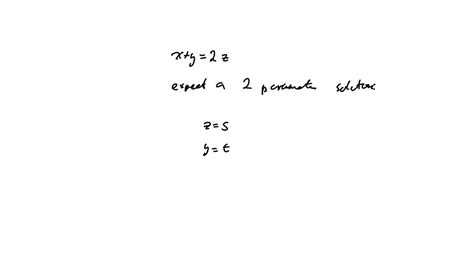 x+y=2z
expect a 2 parameter solution
z=s
y=t